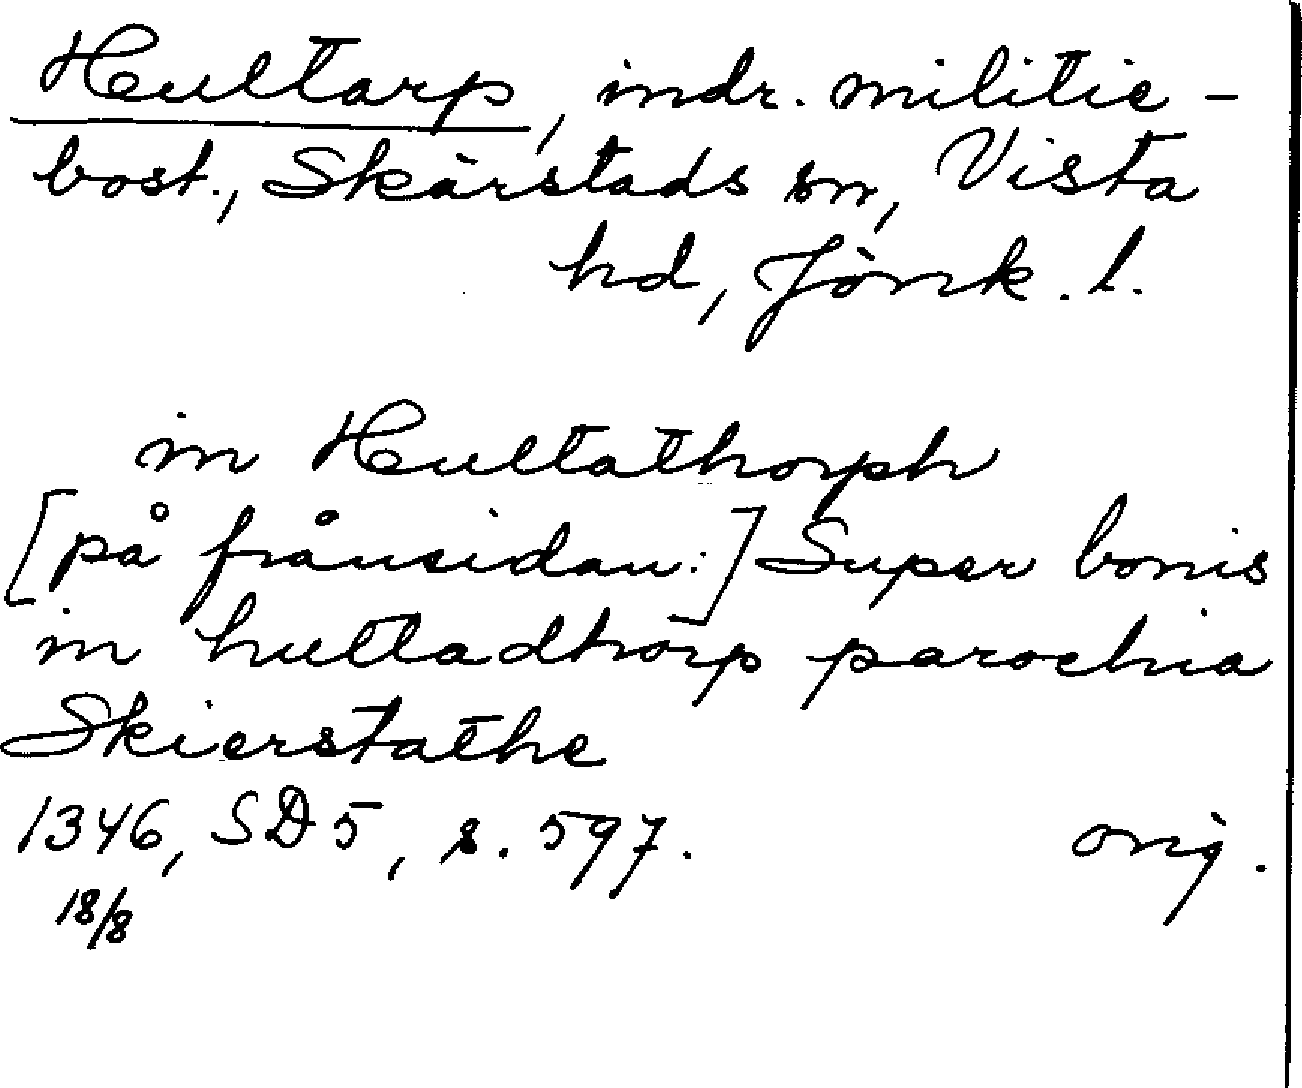 Hultarp, indr. militie-
bost., Skärstads sn, Vista
hd, Jönk. l.
in Hultathorph
[på frånsidan:] Super bonis
in hultadthorp parochia
Skierstathe
1346, SD 5, s. 597. orig.
18/8